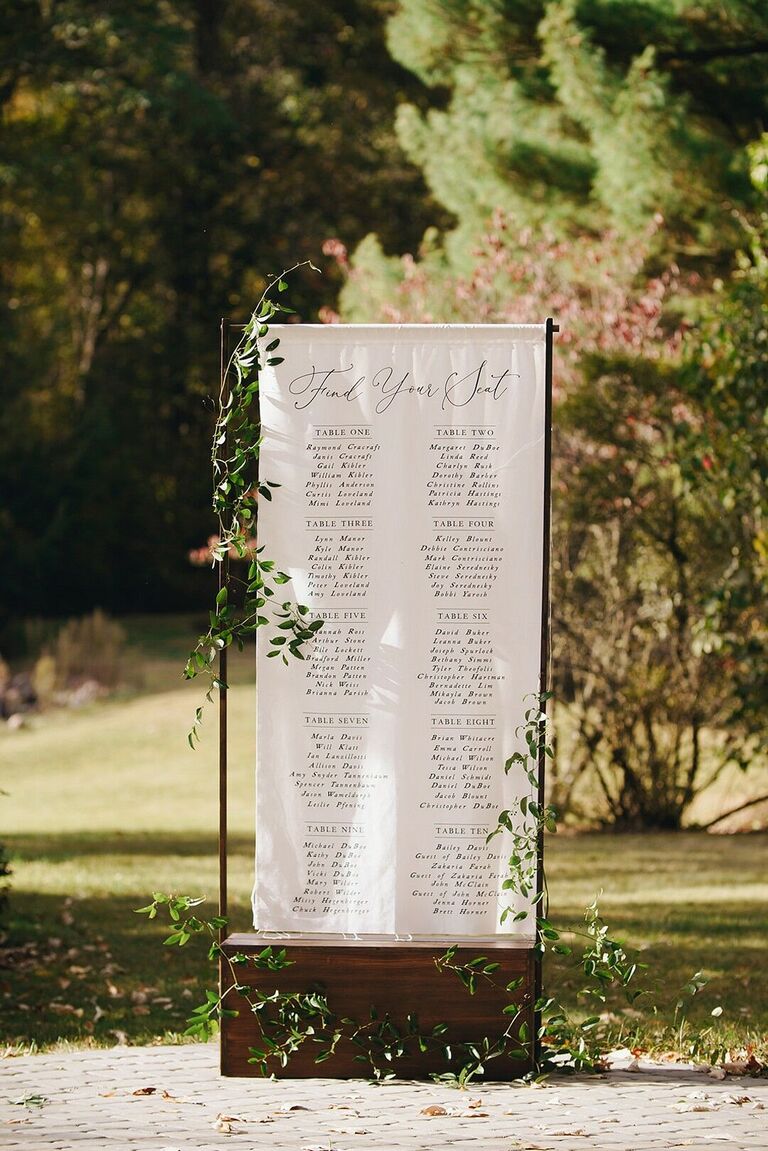 Find Your Seat
TABLE ONE
Raymond Cracraft
Janis Cracraft
Gail Kibler
William Kibler
Phyllis Anderson
Curtis Loveland
Mimi Loveland
TABLE TWO
Margaret DuBoe
Linda Reed
Charlyn Rusk
Dorothy Barber
Christine Rollins
Patricia Hastings
Kathryn Hastings
TABLE THREE
Lynn Manor
Kyle Manor
Randall Kibler
Colin Kibler
Timothy Kibler
Peter Loveland
Amy Loveland
TABLE FOUR
Kelley Blount
Debbie Contrisciano
Mark Contrisciano
Elaine Serednesky
Steve Serednesky
Joy Serednesky
Bobbi Yarosh
TABLE FIVE
Hannah Ross
Arthur Stone
Elle Lockett
Bradford Miller
Megan Patten
Brandon Patten
Nick Weiss
Brianna Parish
TABLE SIX
David Buker
Leanna Buker
Joseph Spurlock
Bethany Simms
Tyler Theofilis
Christopher Hartman
Bernadette Lim
Mikayla Brown
Jacob Brown
TABLE SEVEN
Marla Davis
Will Klatt
Ian Lanzillotti
Allison Davis
Amy Snyder Tannenbaum
Spencer Tannenbaum
Jason Wameldorph
Leslie Pfening
TABLE EIGHT
Brian Whitacre
Emma Carroll
Michael Wilson
Tessa Wilson
Daniel Schmidt
Daniel DuBoe
Jacob Blount
Christopher DuBoe
TABLE NINE
Michael DuBoe
Kathy DuBoe
John DuBoe
Vicki DuBoe
Mary Wilder
Robert Wilder
Missy Hegenberger
Chuck Hegenberger
TABLE TEN
Bailey Davis
Guest of Bailey Davis
Zakaria Farah
Guest of Zakaria Farah
John McClain
Guest of John McClain
Jenna Horner
Brett Horner